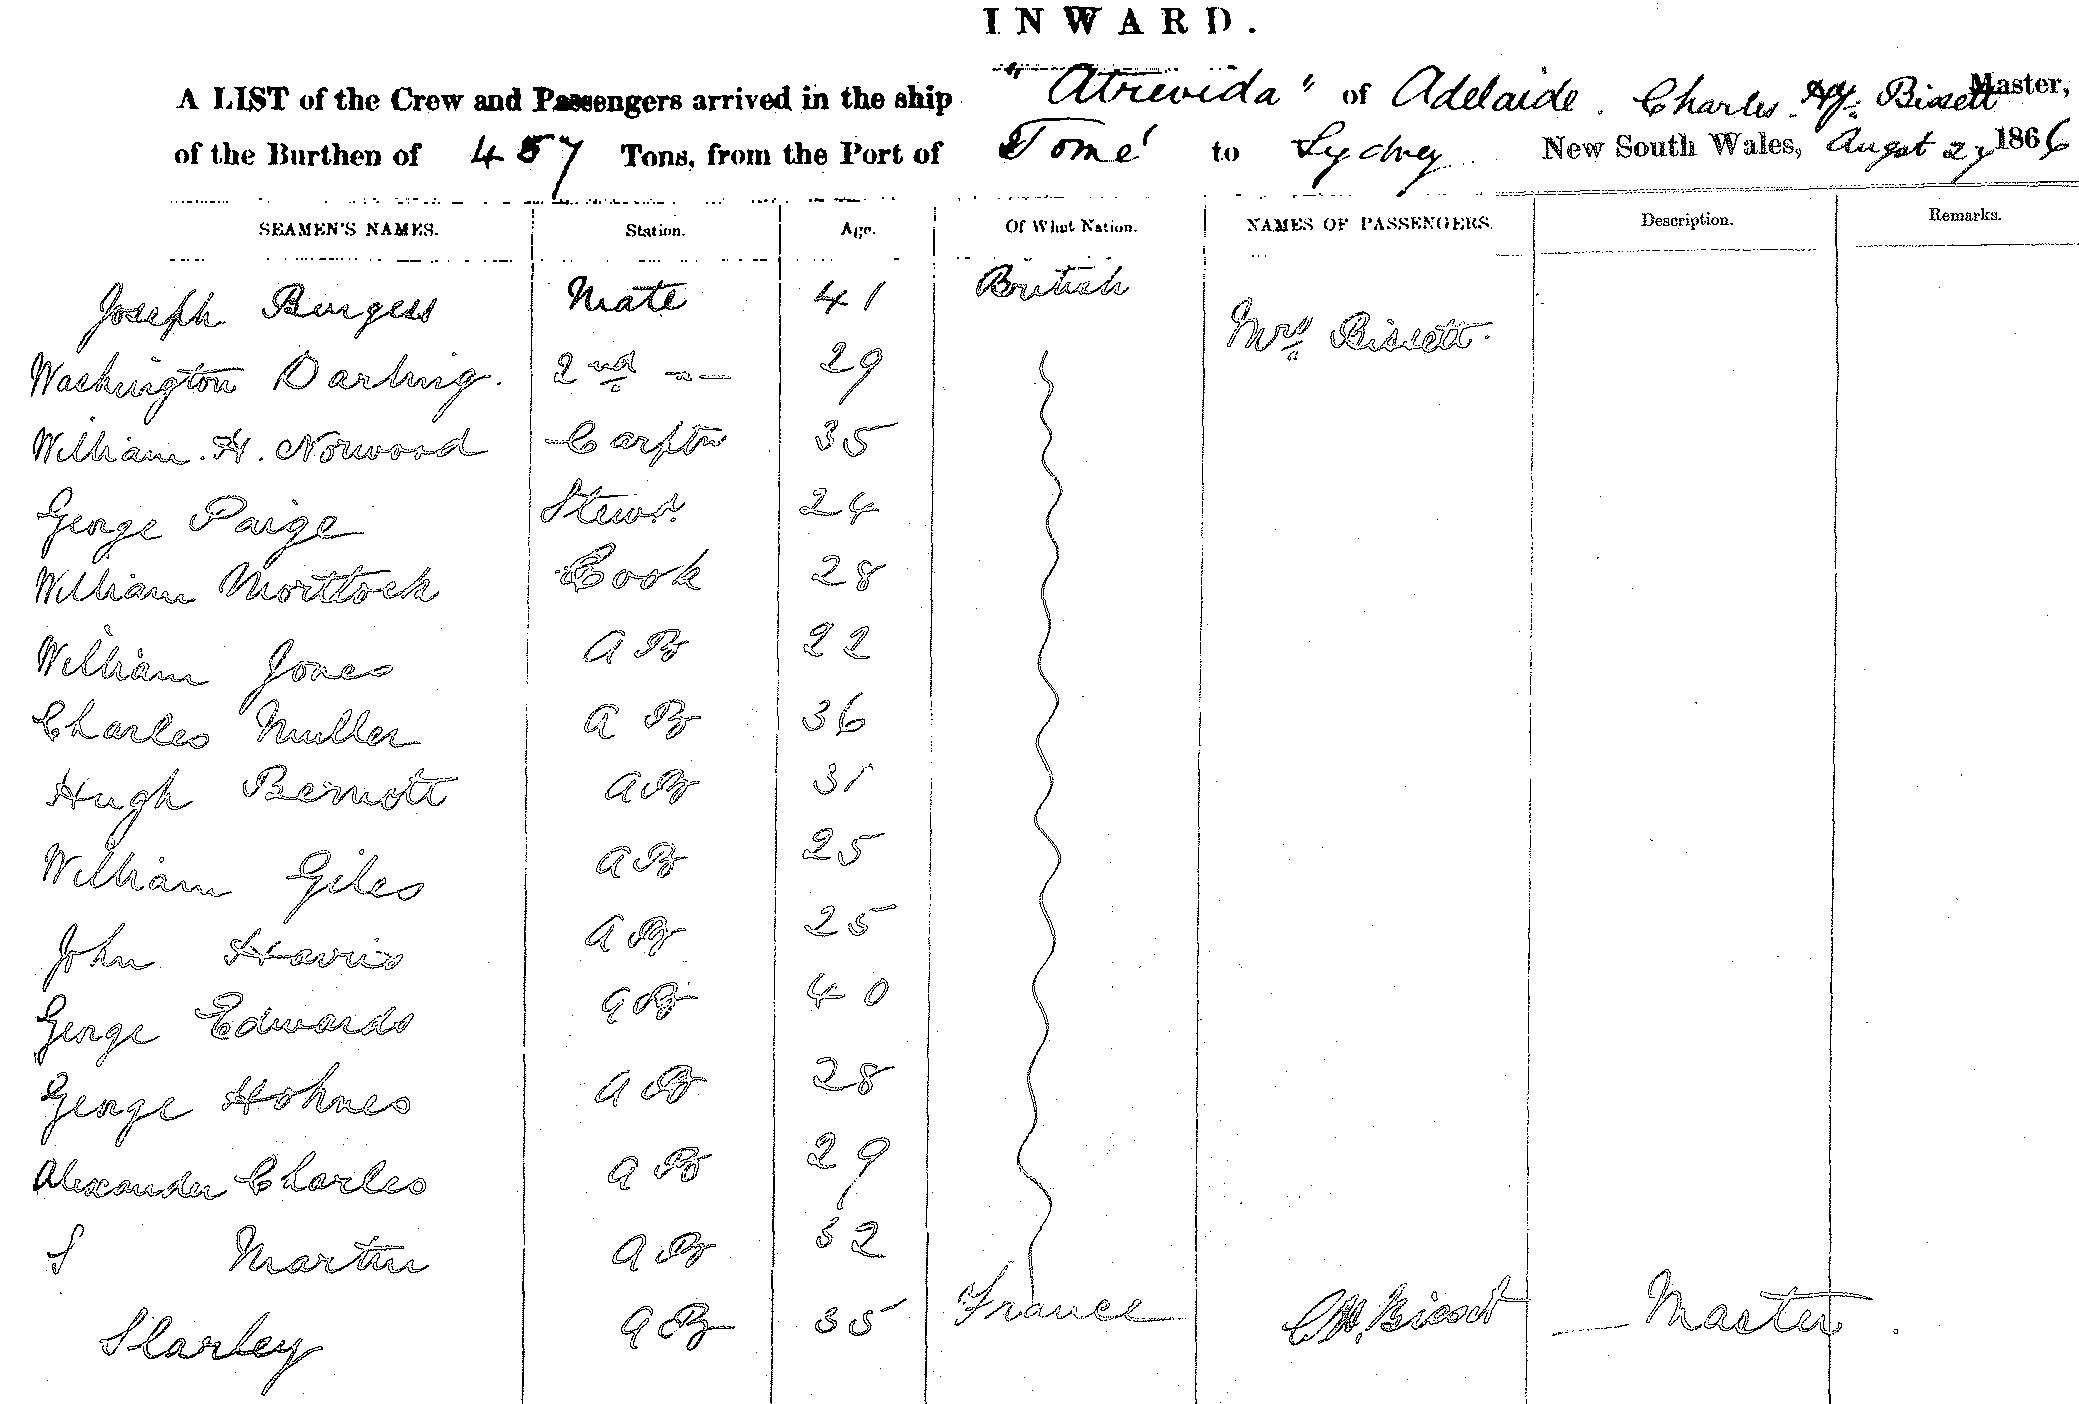 INWARD.
A LIST of the Crew and Passengers arrived in the ship "Atrevida" of Adelaide. Charles Hy. Bissett Master,
of the Burthen of 457 Tons, from the Port of Tomé to Sydney New South Wales, Augst 27 1866
SEAMEN'S NAMES. Station. Age. Of What Nation. NAMES OF PASSENGERS. Description. Remarks.
Joseph Burgess Mate 41 British
Mrs Bissett.
Washington Darling. 2nd " — 29
William. H. Norwood Carptr 35
George Paige Stewd. 24
William Morttock Cook 28
William Jones AB 22
Charles Muller AB 36
Hugh Bernott AB 31
William Giles AB 25
John Harris AB 25
George Edwards AB 40
George Holmes AB 28
Alexander Charles AB 29
S Martin AB 32
Slarley AB 35 France CH. Bissett — Master.